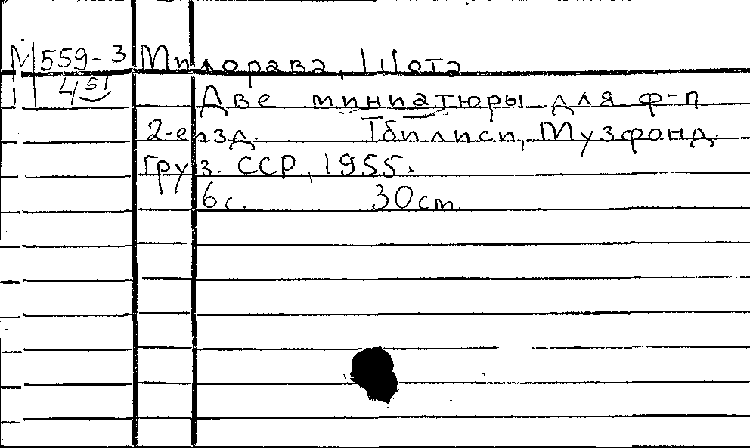 М 559-3 Милорава, Шота
4 51
Две миниатюры для ф-п
2-е изд. Тбилиси, Музфонд
Груз. ССР, 1955.
6 с. 30 cm